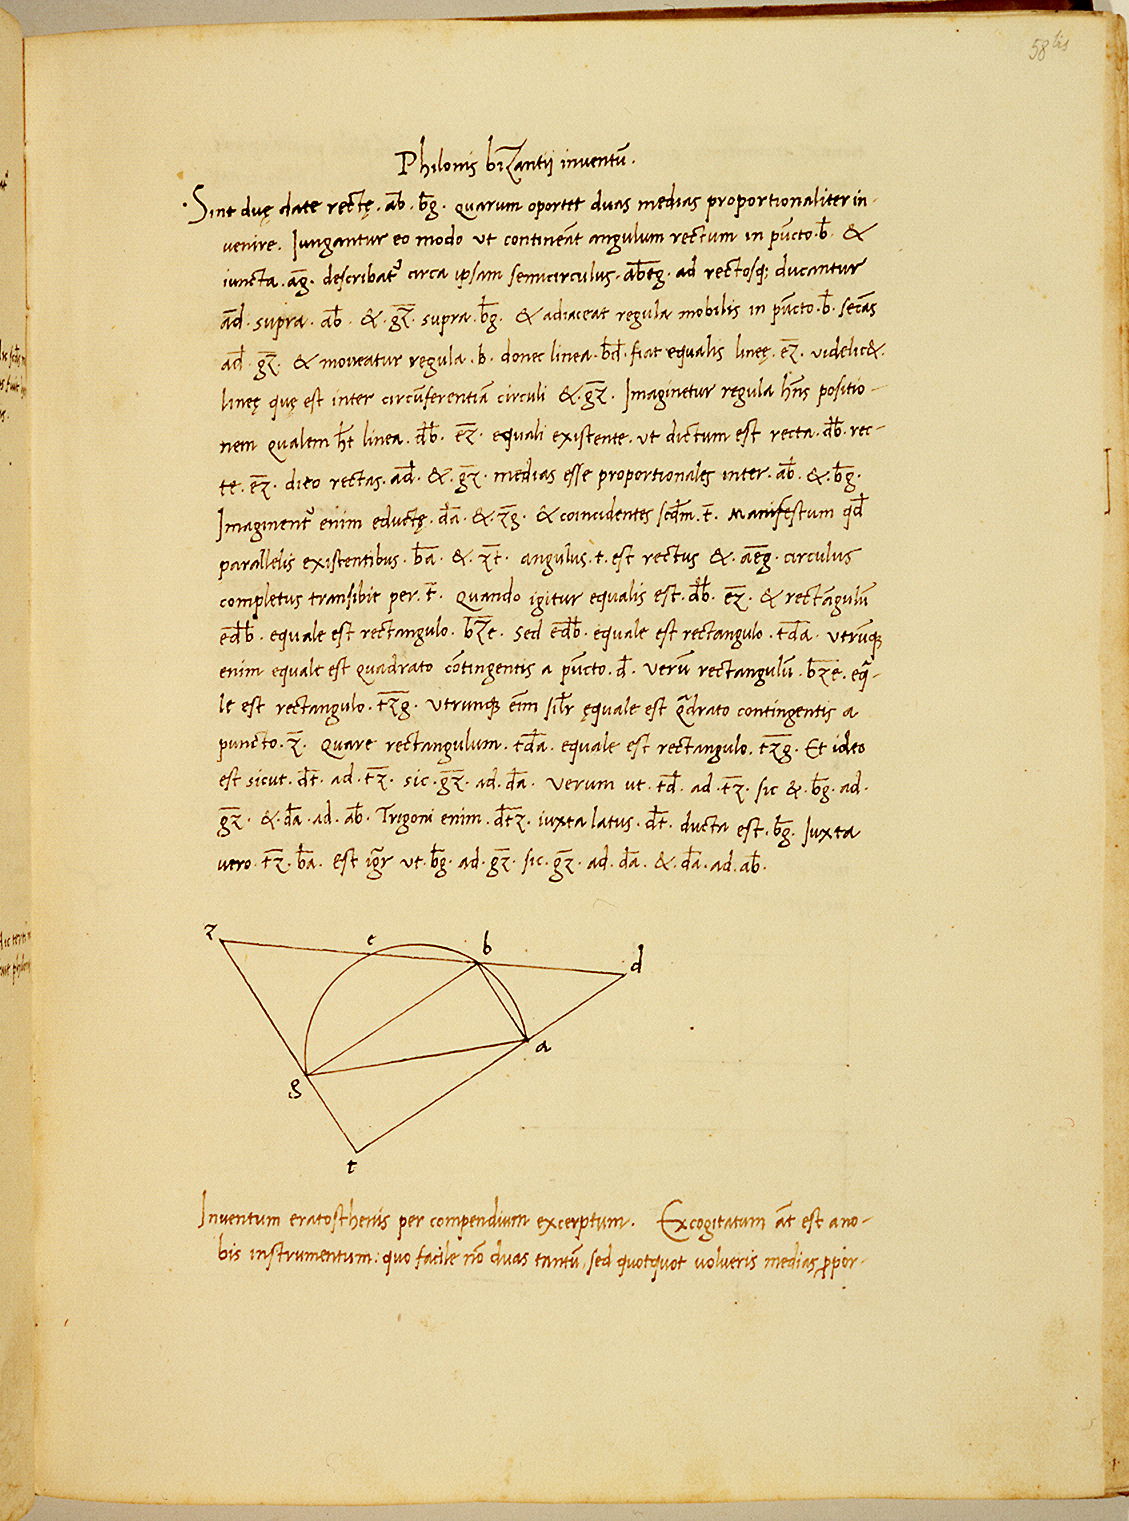 58 bis
Philonis biZantij inventū.
Sint duę date rectę. ab̄. b̄g. quarum oportet duas medias proportionaliter in-
venire. Jungantur eo modo ut contineāt angulum rectum in pūcto. b̄. &
iuncta. āg. describat᷑ circa ipsam semicirculus. ab̄eg. ad rectosq; ducantur
ād. supra. ab̄. &. ḡz. supra. b̄g. & adiaceat regula mobilis in pūcto. b̄. secās
ad̄. ḡz. & moveatur regula. b. donec linea. b̄d̄. fiat equalis lineę. ēz. videlic&.
lineę quę est inter circūferentiā circuli &. ḡz. Imaginetur regula hn̄s positio-
nem qualem h̄t linea. d̄b̄. ēz. equali existente. ut dictum est recta. d̄b̄. rec-
te. ēz. dico rectas. ad̄. &. ḡz. medias esse proportionales inter. ab̄. &. b̄g.
Imaginent᷑ enim eductę. d̄a. &. z̄g. & coincidentes scd̄m. t̄. Manifestum qd̄
parallelis existentibus. b̄a. &. z̄t. angulus. t. est rectus &. aēg. circulus
completus transibit per. t̄. Quando igitur equalis est. d̄b̄. ēz. & rectāgulū
ed̄b̄. equale est rectangulo. b̄ze. Sed ed̄b̄. equale est rectangulo. td̄a. utrūq;
enim equale est quadrato cōtingentis a pūcto. d̄. verū rectangulū. b̄ze. eq̄-
le est rectangulo. tz̄g. utrunq; eīm silr̄ ęquale est q̄drato contingentis a
puncto. z̄. Quare rectangulum. td̄a. equale est rectangulo. tz̄g. Et ideo
est sicut. d̄t. ad. tz̄. sic. ḡz. ad. d̄a. verum ut. td̄. ad. tz̄. sic &. b̄g. ad.
ḡz. &. d̄a. ad. ab̄. Trigoni enim. d̄tz. iuxta latus. d̄t. ducta est. b̄g. Juxta
vero. tz̄. b̄a. Est igr̄ ut. b̄g. ad. ḡz. sic. ḡz. ad. d̄a. &. d̄a. ad. ab̄.
z
e
b
d
a
g
t
Inventum eratosthenis per compendium excerptum. Excogitatum āt est a no-
bis instrumentum: quo facile nō duas tantū, sed quotquot volueris medias ꝓpor-